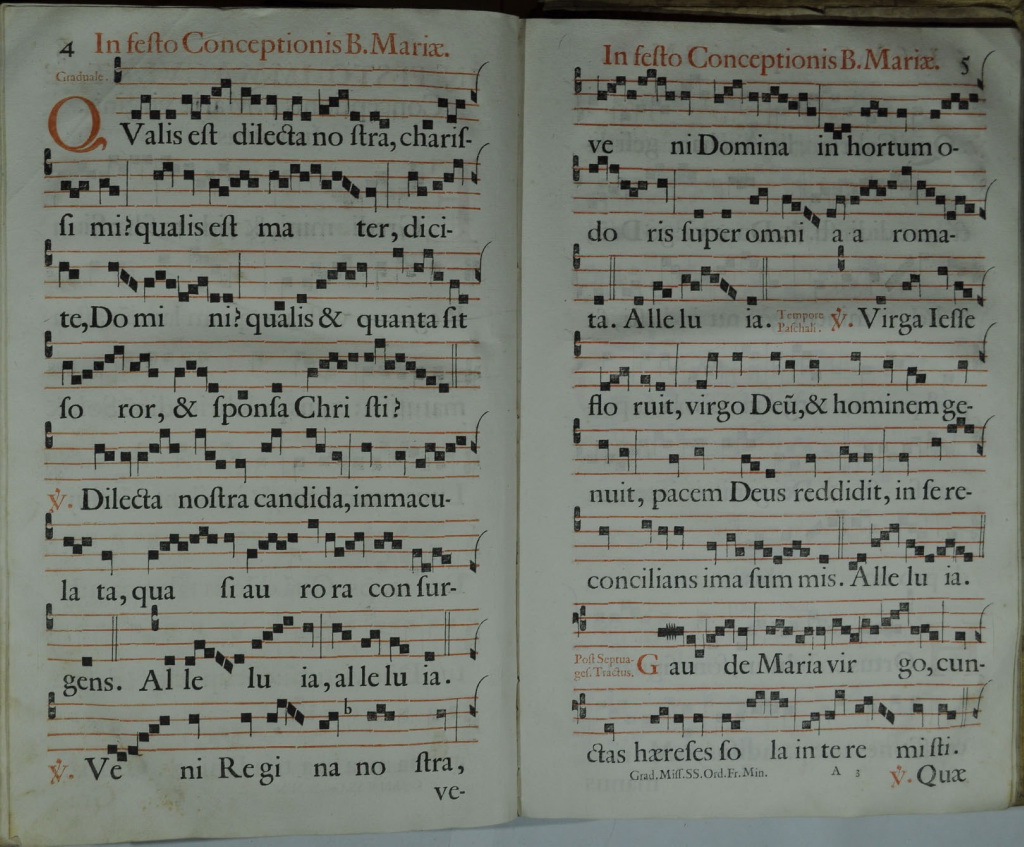 4 In festo Conceptionis B. Mariæ.
Graduale.
QValis est dilecta no stra, charis-
si mi? qualis est ma ter, dici-
te, Do mi ni? qualis & quanta sit
so ror, & sponsa Chri sti?
℣. Dilecta nostra candida, immacu-
la ta, qua si au ro ra con sur-
gens. Al le lu ia, al le lu ia.
b
℣. Ve ni Re gi na no stra,
ve-
In festo Conceptionis B. Mariæ. 5
ve ni Domina in hortum o-
do ris super omni a a roma-
ta. Alle lu ia. Tempore Paschali. ℣. Virga Iesse
flo ruit, virgo Deũ, & hominem ge-
nuit, pacem Deus reddidit, in se re-
concilians ima sum mis. Alle lu ia.
Post Septua-
ges. Tractus. Gau de Maria vir go, cun-
ctas hæreses so la in te re mi sti.
Grad. Miss. SS. Ord. Fr. Min. A 3 ℣. Quæ